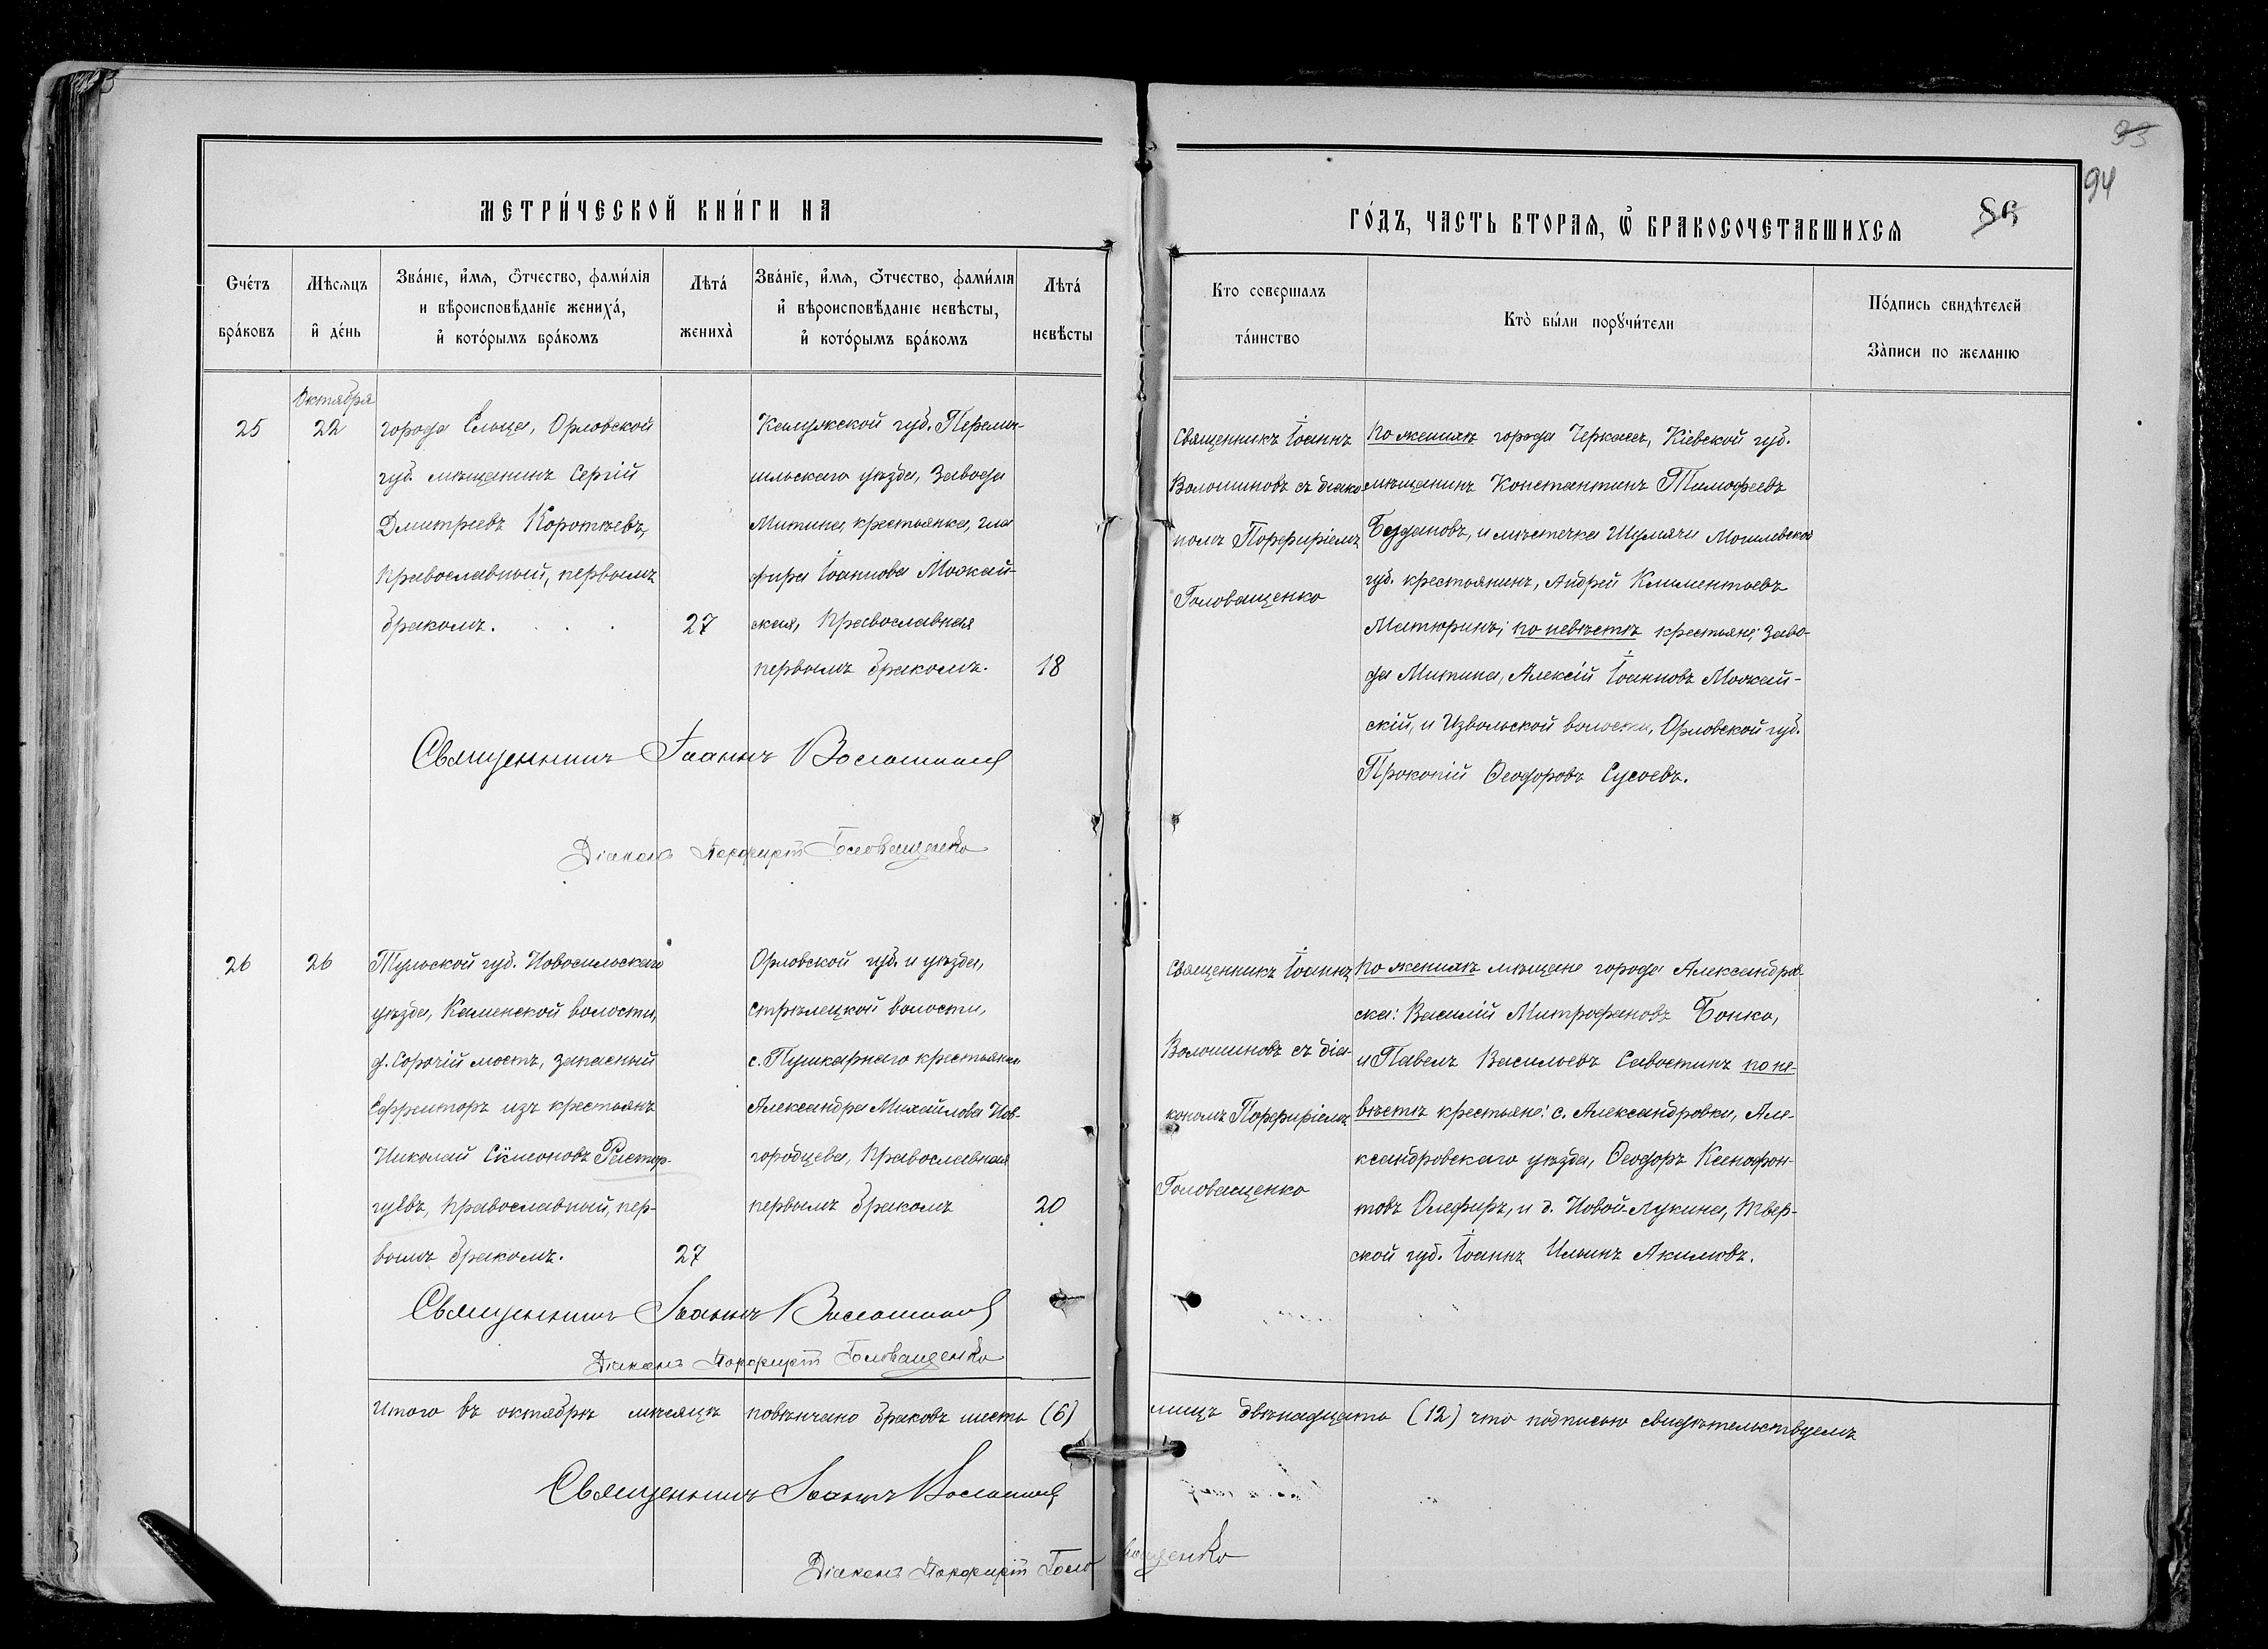 МЕТРИ́ЧЕСКОЙ КНИ́ГИ НА
ГО́ДЪ, ЧАСТЬ ВТОРАѦ, Ѽ БРАКОСОЧЕТАВШИХСѦ
93
94
Сче́тъ
бра́ковъ
Мѣсяцъ
и де́нь
Зва́нїе, и́мѧ, ѻ́тчество, фами́лїѧ
и вѣроисповѣ́данїе жениха́,
и кото́рымъ бра́комъ
Лѣта́
жениха̀
Зва́нїе, и́мѧ, ѻ́тчество, фами́лїѧ
и вѣроисповѣ́данїе невѣ́сты,
и кото́рымъ бра́комъ
Лѣта́
невѣ́сты
Кто совершалъ
та́инство
Кто̀ бы́ли порꙋчи́тели
По́дпись свидѣтелей
За̀писи по желанїю
Октября
25
22
города Ельца, Орловской
губ. мѣщанинъ Сергій
Дмитріевъ Коротѣевъ,
православный, первымъ
бракомъ.
27
Калужской губ. Перемы-
шльскаго уѣзда, Завода
Митина, крестьянка, Гла
фира Іоаннова Можай-
ская, православная
первымъ бракомъ.
18
Священникъ Іоаннъ
Волошиновъ съ діако
номъ Порфиріемъ
Головащенко
По женихѣ города Черкасъ, Кіевской губ.
мѣщанинъ Константинъ Тимофеевъ
Будановъ, и мѣстечка Шумячи Могилевской
губ. крестьянинъ, Андрей Климентьевъ
Матюринъ; по невѣстѣ крестьяне: Заво-
да Митина, Алексій Іоанновъ Можай-
скій, и Извольской волости, Орловской губ.
Прокопій Ѳеодоровъ Сусоевъ.
Священникъ Іоаннъ Волошиновъ
Діаконъ Порфирій Головащенко
26
26
Тульской губ. Новосильскаго
уѣзда, Каменской волости,
д. Сорочій мостъ, запасный
Ефрейторъ изъ крестьянъ
Николай Сімеоновъ Растор-
гуевъ, православный, пер-
вымъ бракомъ.
27
Орловской губ. и уѣзда,
Стрѣлецкой волости,
с. Пушкарнаго крестьянка
Александра Михайлова Нов-
городцева, православная
первымъ бракомъ
20
Священникъ Іоаннъ
Волошиновъ съ діа-
кономъ Порфиріемъ
Головащенко
По женихѣ мѣщане города Александров
ска: Василій Митрофановъ Бонко,
и Павелъ Васильевъ Савостинъ по не-
вѣстѣ крестьяне: с. Александровки, Але-
ксандровскаго уѣзда, Ѳеодоръ Ксенофон-
товъ Олефиръ, и д. Новой-Лукина, Твер-
ской губ. Іоаннъ Ильинъ Акимовъ.
Священникъ Іоаннъ Волошиновъ
Діаконъ Порфирій Головащенко
Итого въ октябрѣ мѣсяцѣ повѣнчано браковъ шесть (6) лицъ двѣнадцать (12) что подписью свидѣтельствуемъ
Священникъ Іоаннъ Волошиновъ
Діаконъ Порфирій Головащенко